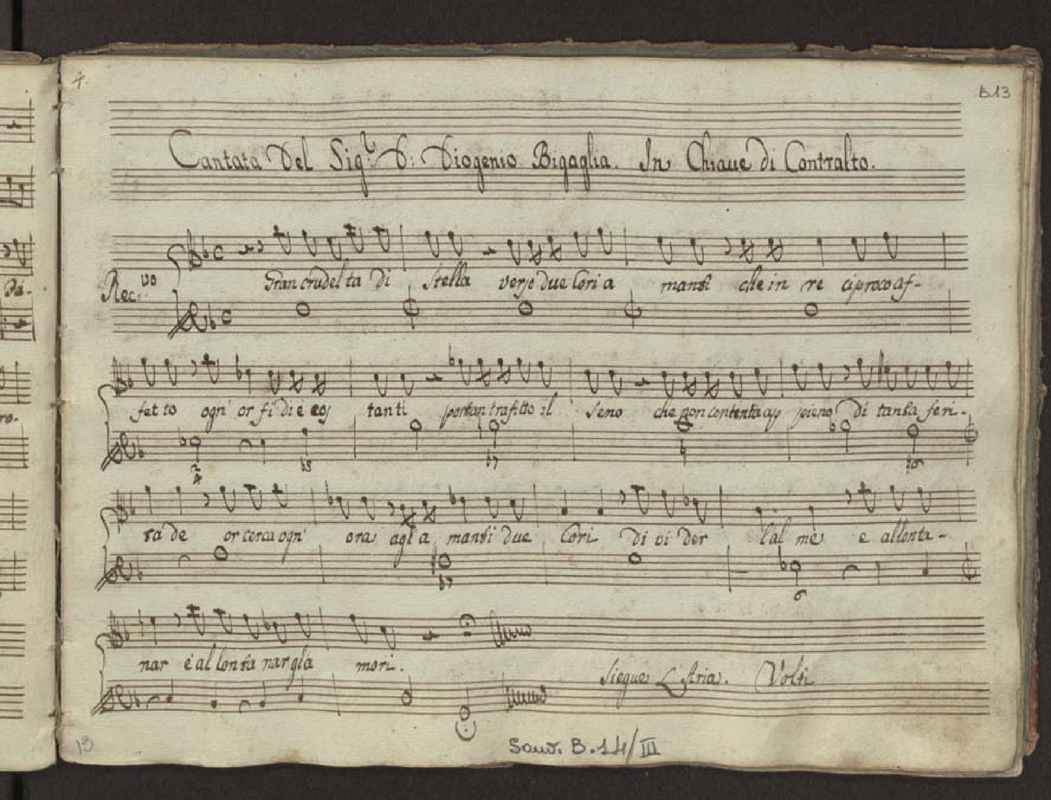 4.
B13
Cantata Del Sig.r D: Diogenio Bigaglia. In Chiaue di Contralto.
Rec:vo Gran crudel ta di Stella verso due Cori a manti che in re ciproco af-
fetto ogn' or fi di e cos tanti portan trafitto il seno che non contenta ap pieno di tanta feri-
ta de or cerca ogn' ora agl a manti due Cori di vi der l'al me e allonta-
nar e al lonta nar gla mori.
Siegue L'Aria. Volti
13
Sant. B. 14/III